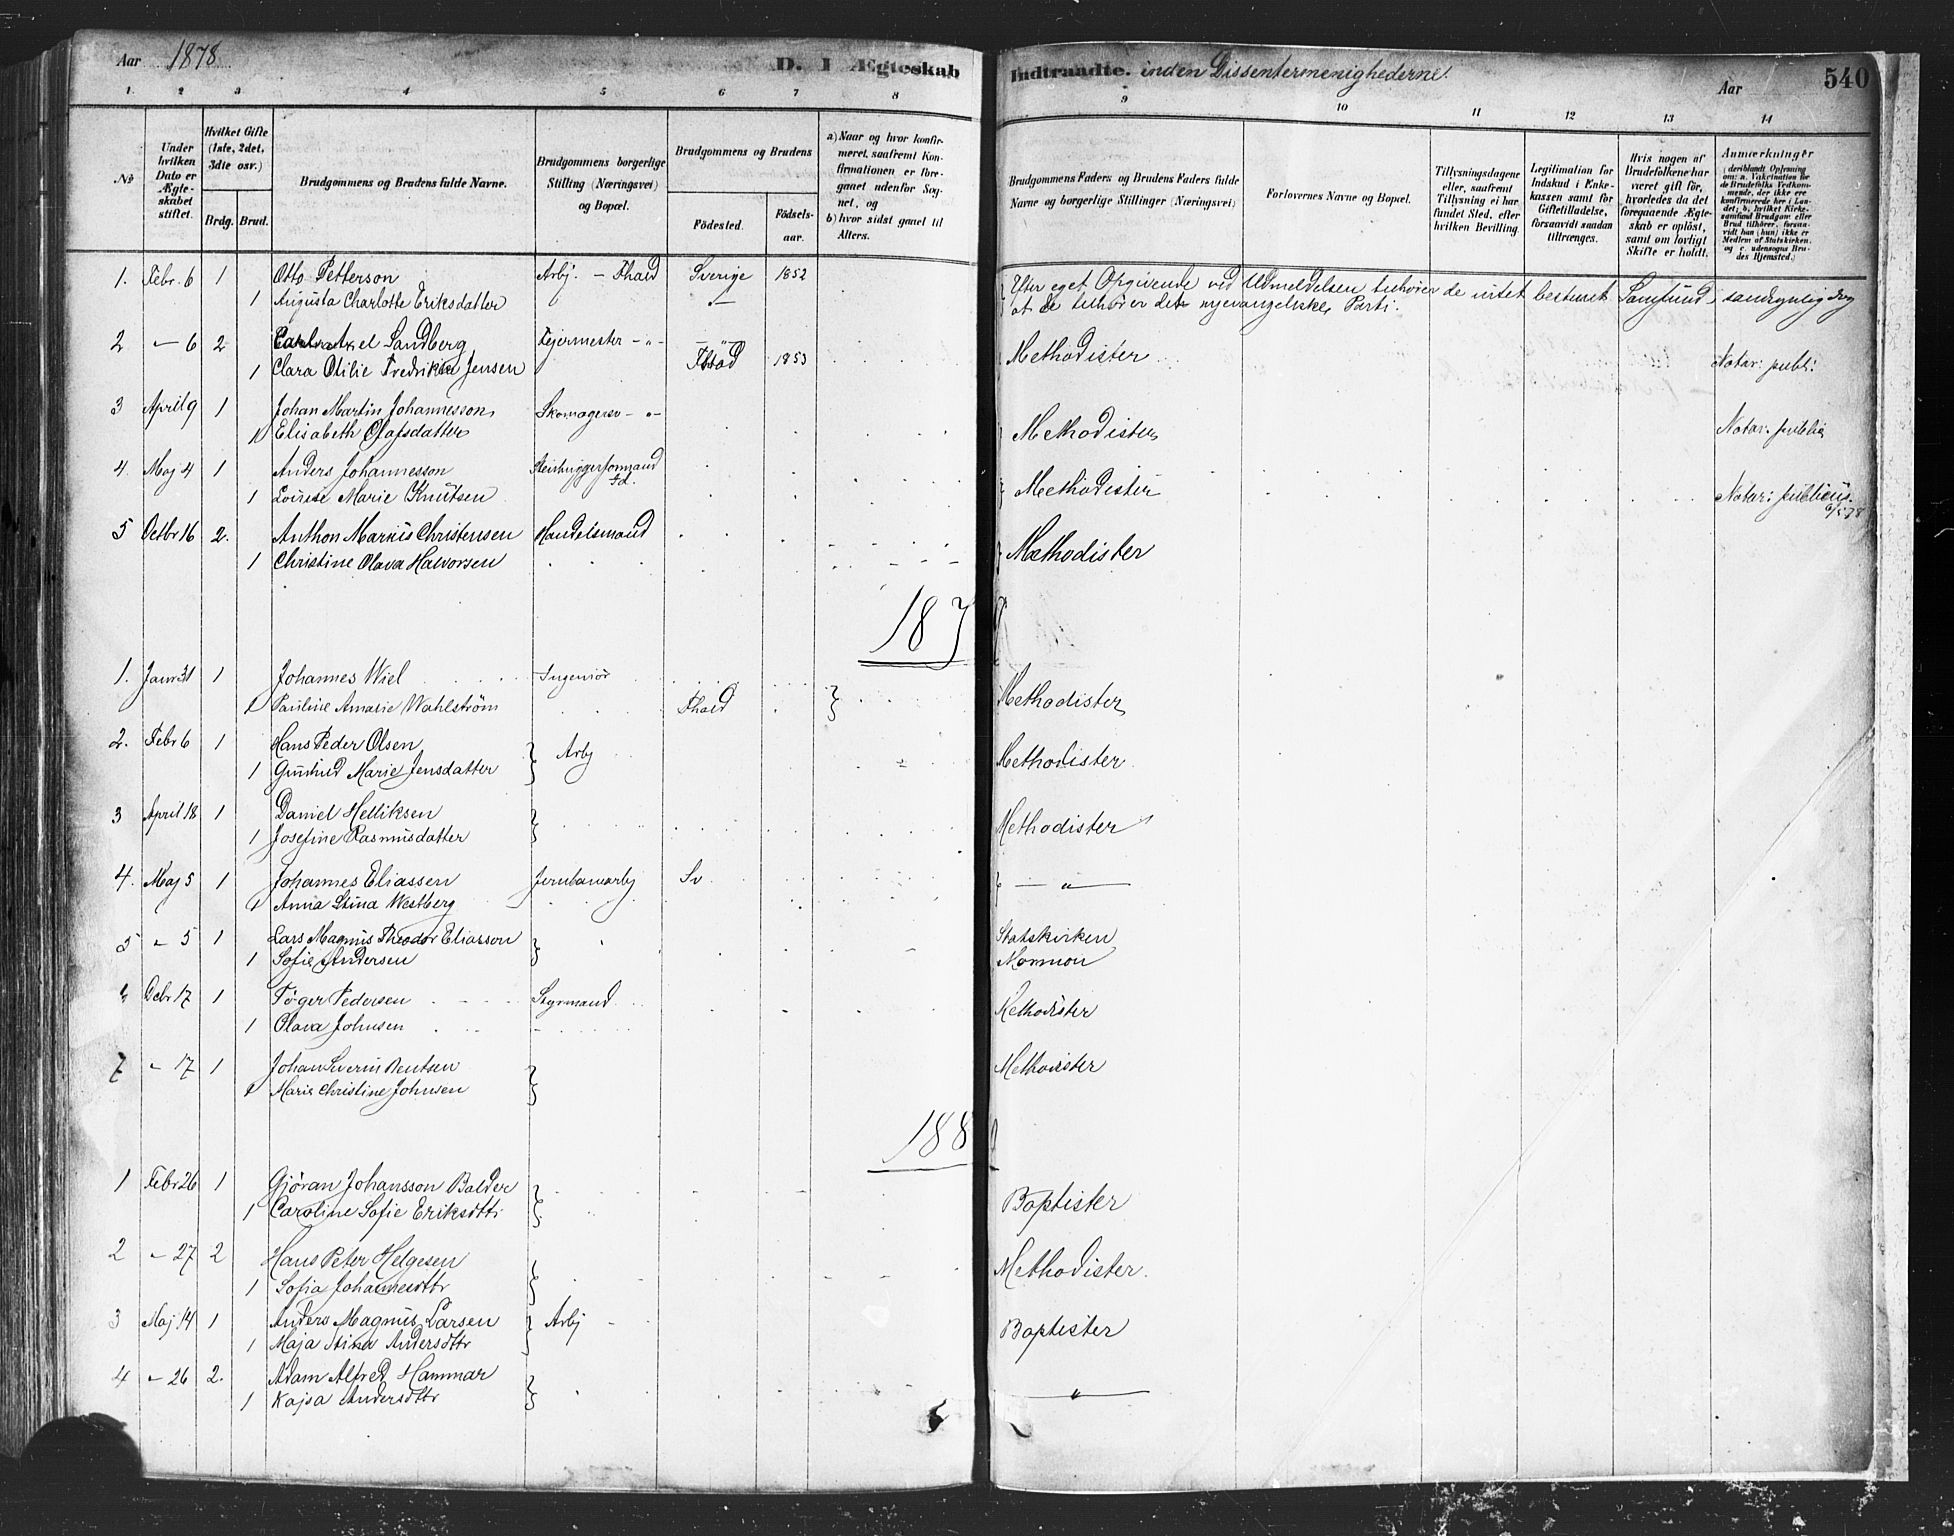 Aar 1878 D. 1 Ægteskab Indtraadte. inden Dissentermenighederne. Aar 540
1 2 3 4 5 6 7 8 9 10 11 12 13 14
№
Under hvilken Dato er Ægteskabet stiftet.
Hvilket Gifte (1ste, 2det, 3die osv.)
Brdg. Brud.
Brudgommens og Brudens fulde Navne.
Brudgommens borgerlige Stilling (Næringsvei) og Bopæl.
Brudgommens og Brudens
Födested. Födselsaar.
a) Naar og hvor konfirmeret, saafremt Konfirmationen er foregaaet udenfor Sognet, og
b) hvor sidst gaaet til Alters.
Brudgommens Faders og Brudens Faders fulde Navne og borgerlige Stillinger (Næringsvei)
Forlovernes Navne og Bopæl.
Tillysningsdagene eller, saafremt Tillysning ei har fundet Sted, efter hvilken Bevilling.
Legitimation for Indskud i Enkekassen samt for Giftetilladelse, forsaavidt saadan tiltrænges.
Hvis nogen af Brudefolkene har været gift för, hvorledes da det foregaaende Ægteskab er oplöst, samt om lovligt Skifte er holdt.
Anmærkninger (deriblandt Oplysning om: a. Vakcination for de Brudefolks Vedkommende, der ikke ere konfirmerede her i Landet; b. hvilket Kirkesamfund Brudgom eller Brud tilhörer, forsaavidt han (hun) ikke er Medlem af Statskirken, og c. udensogns Brudes Hjemsted.)
1. Febr. 6 1 Otto Petterson Arbj. - Fhald Sverige 1852
1 Augusta Charlotte Eriksdatter — "
Efter eget Opgivende ved Udmeldelsen tilhører de intet bestemt Samfund,
at de tilhører det nyevangeliske Parti.
2 " 6 2 Sandberg Fejermester - " -
1 Clara Otilie Fredrikke Jensen Fhald 1853
Methodister Notar: publ:
3 April 9 1 Johan Martin Johannesson, Skomagersv - " -
1 Elisabeth Olafsdatter
Methodister Notar. public
4. Maj 4 1 Anders Johannesson
1 Lovise Marie Knutsen
Methodister Notar: publicus.
5 Octbr 16 2. Anthon Marius Christensen Handelsmand
1 Christine Olava Halvorsen
Methodister
1879
1. Janr 31 1 Johannes Wiel Ingeniør
1 Pauline Amarie Wahlström Fhald
Methodister
2. Febr 6 1 Hans Peder Olsen Arbj
1 Gunhild Marie Jensdatter
Methodister
3 April 18 1 Daniel Helliksen
1 Josefine Rasmusdatter
Methodister
4. Maj 5 1 Johannes Eliassen Jernbanearbj Sv
1 Anna Stina Westberg
— " —
5 " 5 1 Lars Magnus Theodor Eliasson
1 Sofie Andersen
Statskirken
Mormon
6 Decbr 17 1 Tøger Pedersen Styrmand
1 Olava Johnsen
Methodister
7 " 17 1 Johan Severin Bentsen
1 Marie Christine Johnsen
Methodister
1880
1 Febr 26 1 Gjöran Johansson Balder
1 Caroline Sofie Eriksdttr
Baptister
2 " 27 2 Hans Peter Helgesen
1 Sofia Johannesdttr
Methodister.
3 Maj 14 1 Anders Magnus Larsen Arbj
1 Maja Stina Andersdttr
Baptister
4 " 26 2. Adam Alfred Hammar
1 Kajsa Andersdttr
— " —